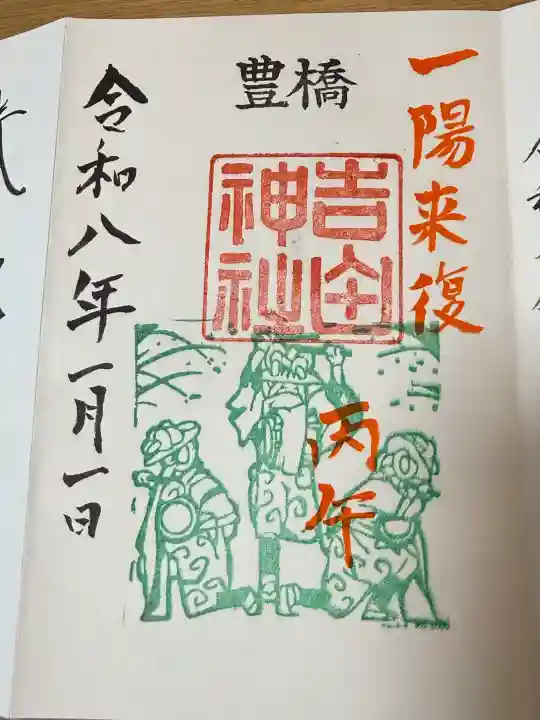 一陽来復
丙午
豊橋
吉田
神社
令和八年一月一日